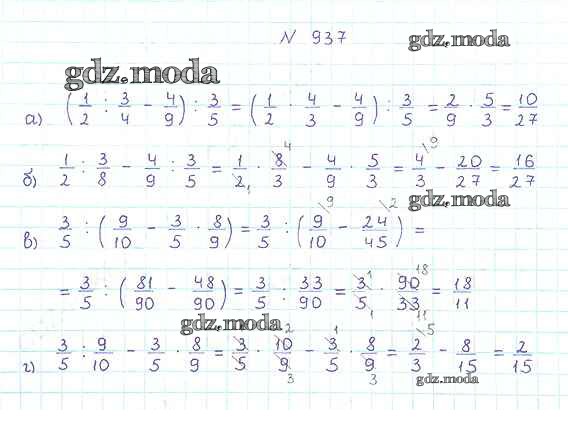 N 937
gdz.moda
gdz.moda
а) (1/2 : 3/4 - 4/9) : 3/5 = (1/2 · 4/3 - 4/9) : 3/5 = 2/9 · 5/3 = 10/27
б) 1/2 : 3/8 - 4/9 : 3/5 = 1/2 1 · 8 4/3 - 4/9 · 5/3 = 4 \9/3 - 20/27 = 16/27
gdz.moda
в) 3/5 : (9/10 - 3/5 · 8/9) = 3/5 : (9 \9/10 - 24 \2/45) =
= 3/5 : (81/90 - 48/90) = 3/5 : 33/90 = 3 1/5 1 · 90 18/33 11 = 18/11
gdz.moda
г) 3/5 : 9/10 - 3/5 · 8/9 = 3/5 · 10 2/9 3 - 3 1/5 · 8/9 3 = 2 \5/3 - 8/15 = 2/15
gdz.moda